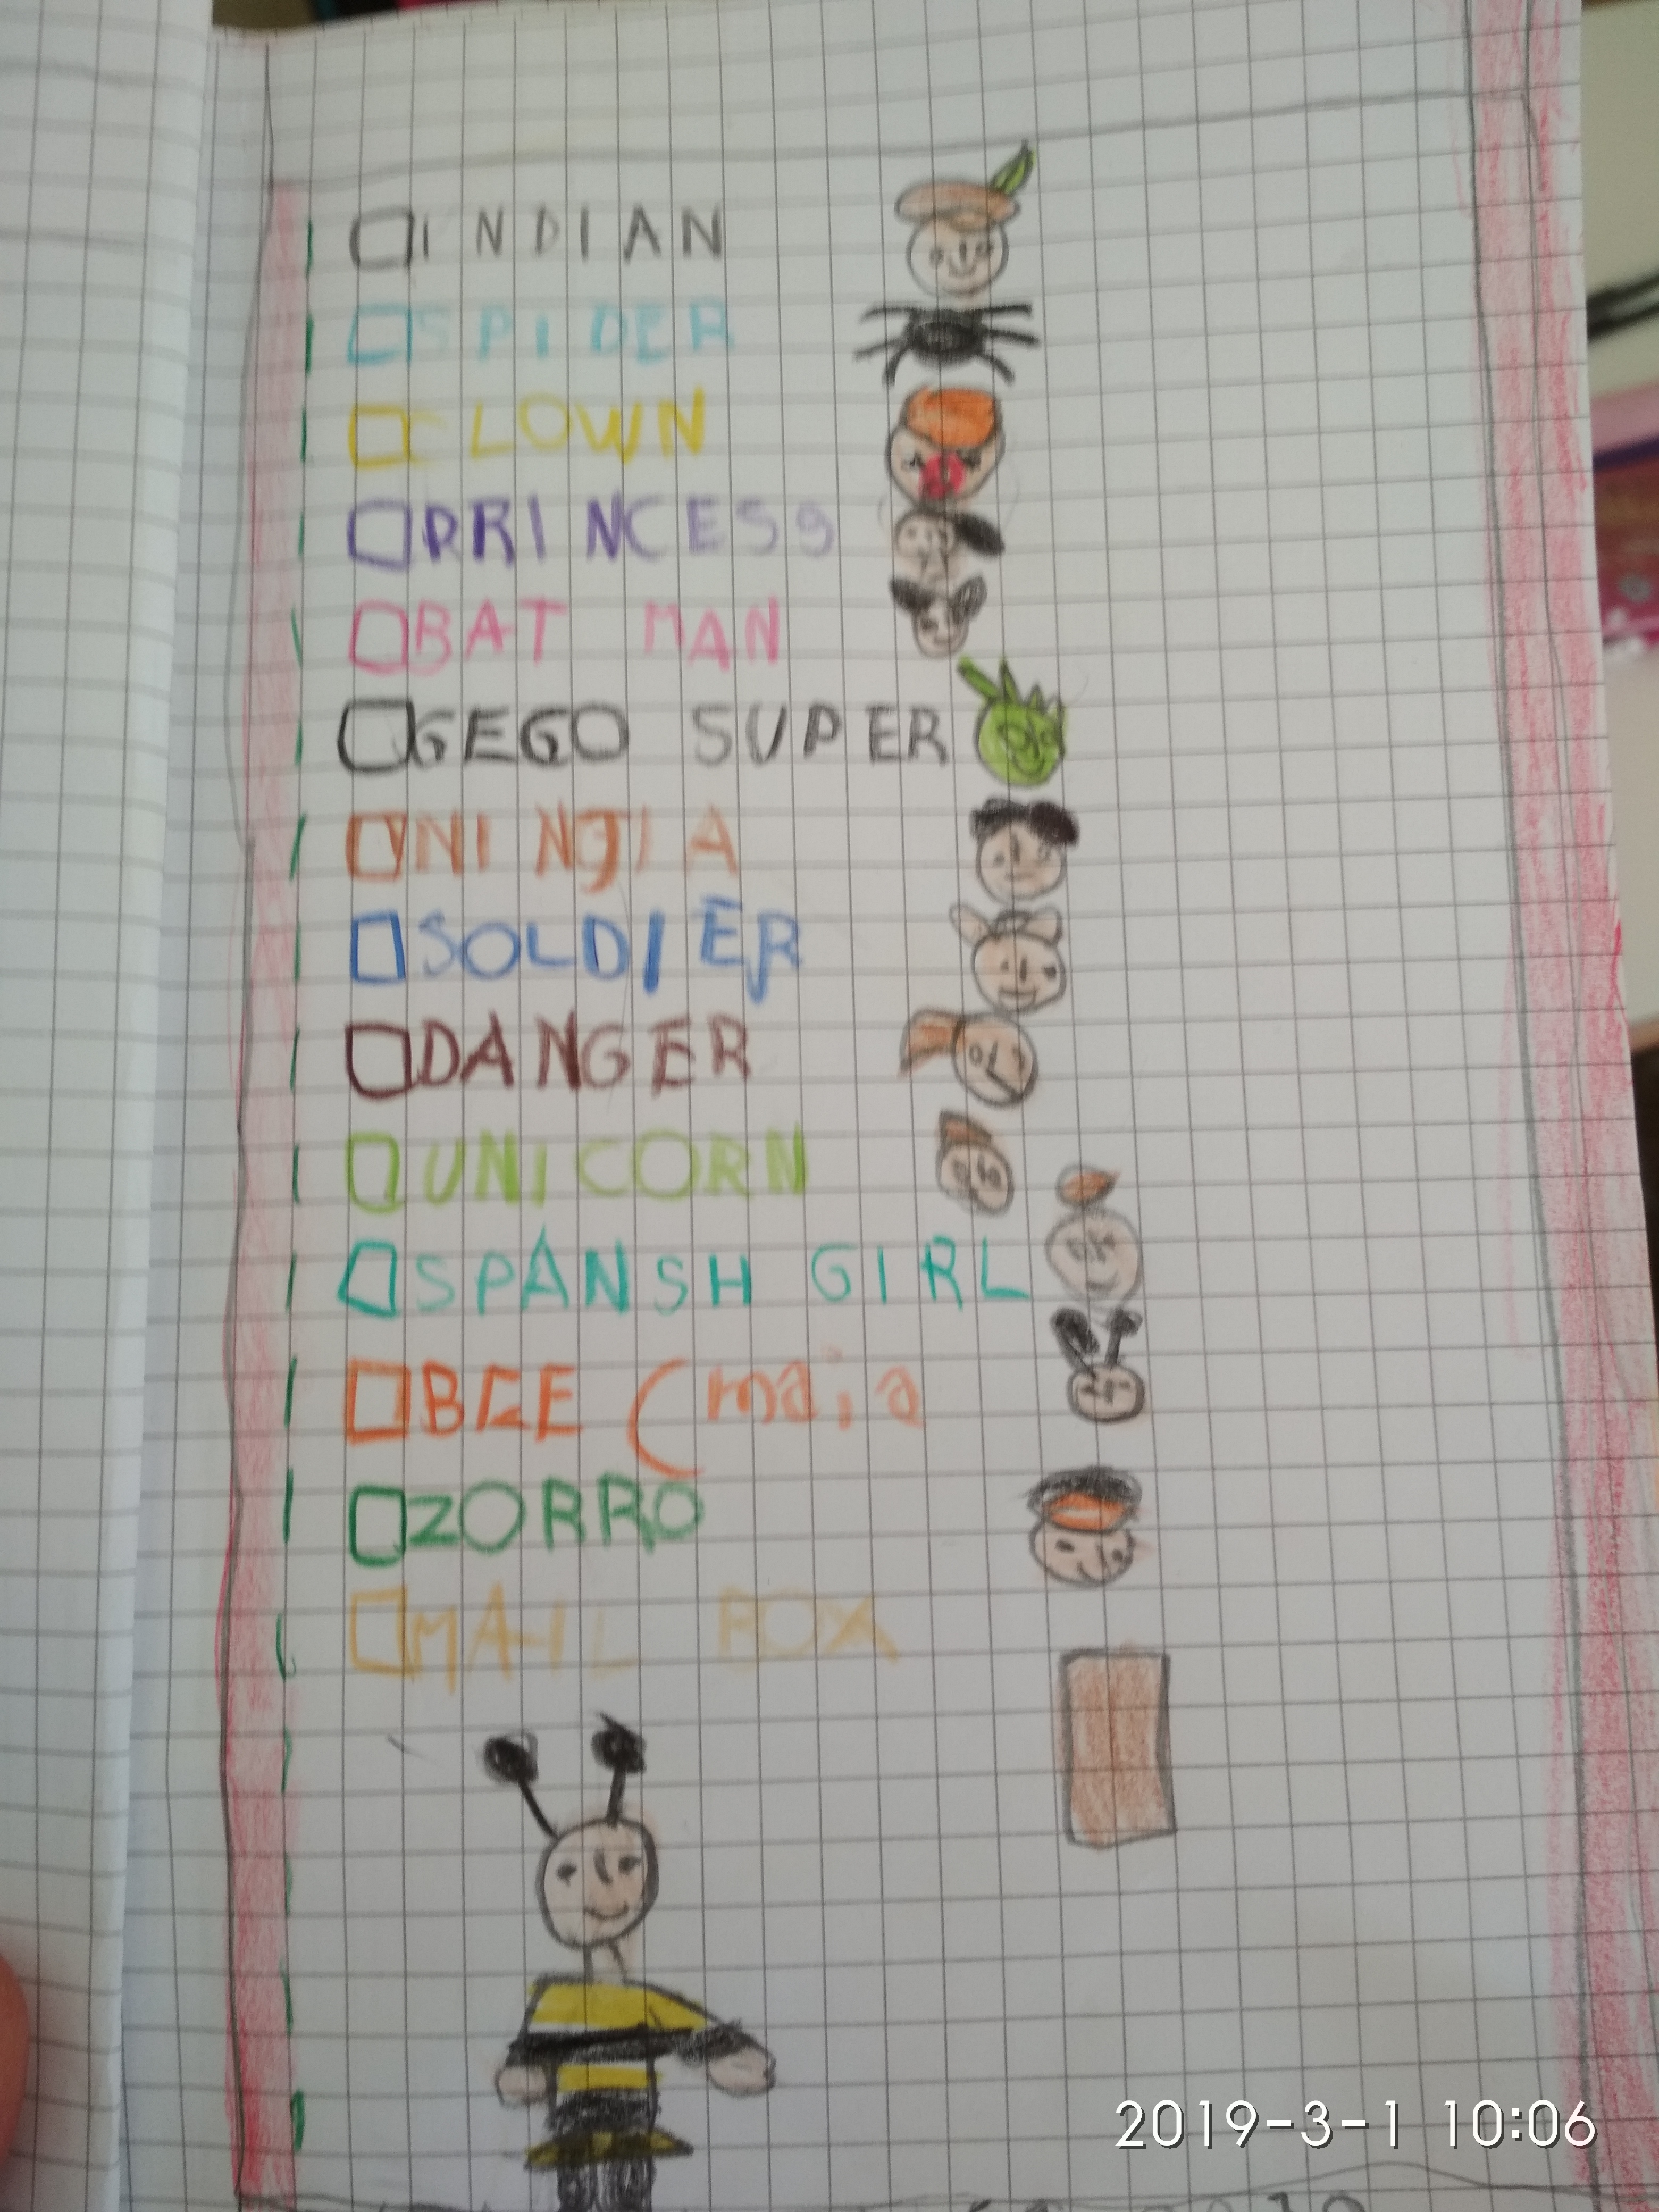 INDIAN
SPIDER
CLOWN
PRINCESS
BAT MAN
GEGO SUPER
NINJIA
SOLDIER
DANGER
UNICORN
SPANSH GIRL
BEE (maia
ZORRO
MAIL BOX
2019-3-1 10:06